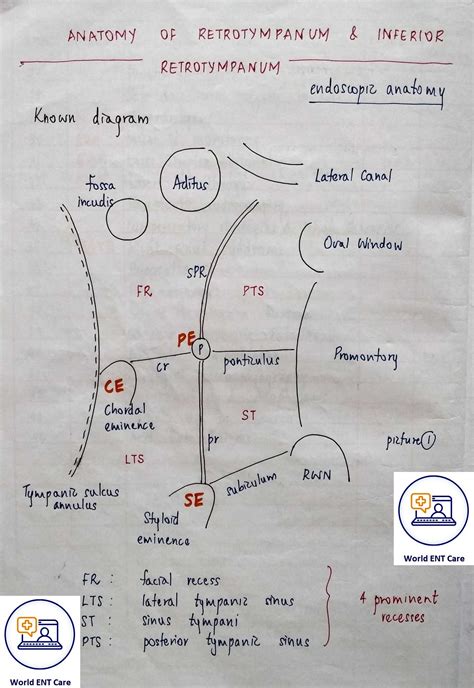 ANATOMY OF RETROTYMPANUM & INFERIOR
RETROTYMPANUM
endoscopic anatomy
Known diagram
Fossa
incudis
Aditus
Lateral Canal
Oval Window
SPR
FR
PTS
PE
P
cr
ponticulus
Promontory
CE
Chordal
eminence
ST
pr
LTS
picture 1
Tympanic sulcus
annulus
SE
subiculum
RWN
Styloid
eminence
World ENT Care
FR : facial recess
LTS : lateral tympanic sinus
ST : sinus tympani
PTS : posterior tympanic sinus
4 prominent
recesses
World ENT Care